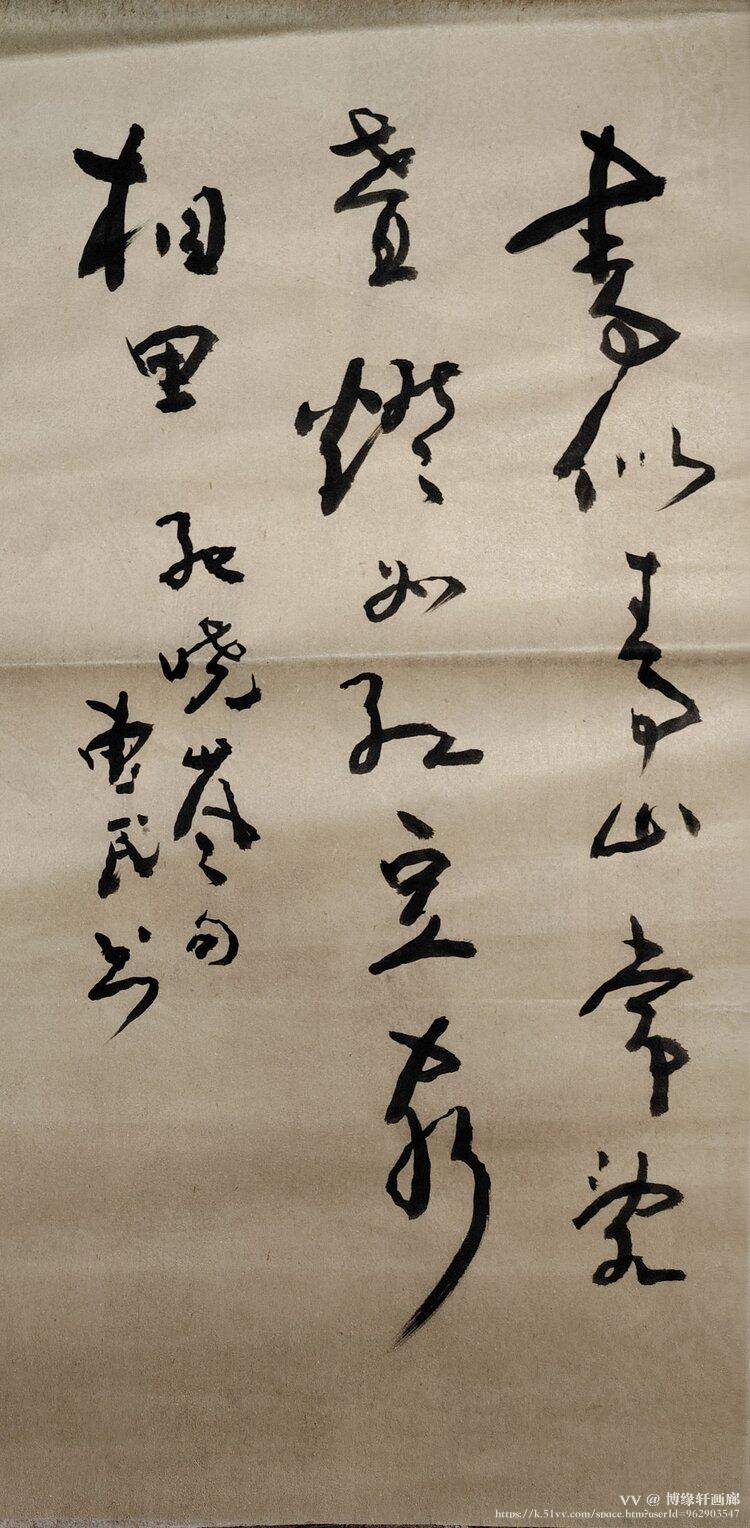 書似青山常乱
叠燈如紅豆最
相思 紀曉嵐句
民书
VV @ 博缘轩画廊
https://k.51vv.com/space.htm?userId=962903547